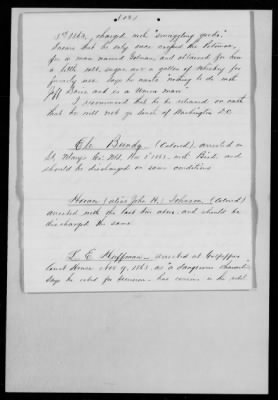 (181)
5th 1863, charged with "smuggling goods."
Swears that he only once crossed the Potomac,
for a man named Colman, and obtained for him
a little salt, sugar and a gallon of whiskey for
family use. Says he wants "nothing to do with
Jeff Davis and is a Union man"
I recommend that he be released on oath
that he will not go south of Washington D.C.
Eli Bundy — (Colored), arrested in
St. Mary's Co. Md. Nov 5" 1863, with Bird and
should be discharged on same conditions
Horan (alias John H.) Johnson (Colored)
arrested with the last two above, and should be
discharged the same
L. E. Hoffman — arrested at Culpepper
Court House Nov 9, 1863. as "a dangerous character"
Says he voted for secession — has cousins in the rebel